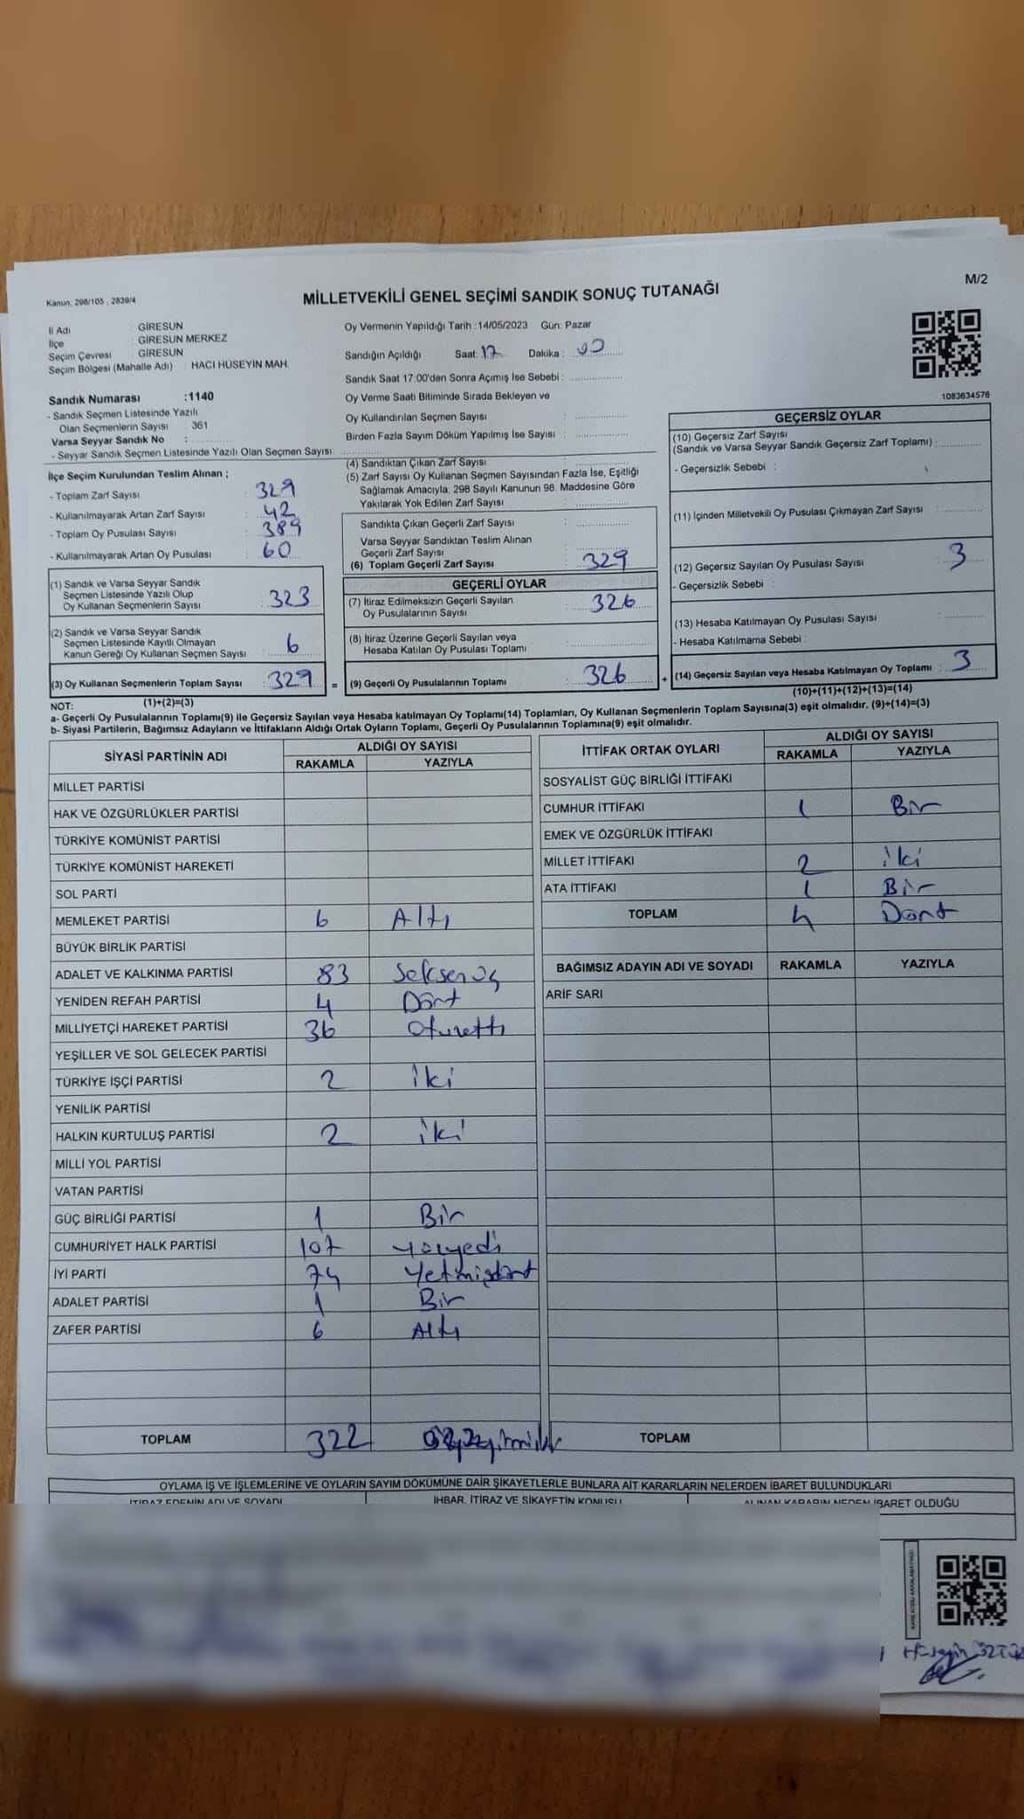 M/2
Kanun: 298/105 , 2839/4
MİLLETVEKİLİ GENEL SEÇİMİ SANDIK SONUÇ TUTANAĞI
İl Adı GİRESUN
İlçe GİRESUN MERKEZ
Seçim Çevresi GİRESUN
Seçim Bölgesi (Mahalle Adı) HACI HÜSEYİN MAH.
Sandık Numarası :1140
- Sandık Seçmen Listesinde Yazılı
Olan Seçmenlerin Sayısı 361
Varsa Seyyar Sandık No :
- Seyyar Sandık Seçmen Listesinde Yazılı Olan Seçmen Sayısı
Oy Vermenin Yapıldığı Tarih :14/05/2023 Gün: Pazar
Sandığın Açıldığı Saat: 17 Dakika : 00
Sandık Saat 17:00'dan Sonra Açılmış İse Sebebi :
Oy Verme Saati Bitiminde Sırada Bekleyen ve
Oy Kullandırılan Seçmen Sayısı :
Birden Fazla Sayım Döküm Yapılmış İse Sayısı :
1083634576
İlçe Seçim Kurulundan Teslim Alınan ;
- Toplam Zarf Sayısı : 329
- Kullanılmayarak Artan Zarf Sayısı : 42
- Toplam Oy Pusulası Sayısı : 389
- Kullanılmayarak Artan Oy Pusulası : 60
(1) Sandık ve Varsa Seyyar Sandık
Seçmen Listesinde Yazılı Olup
Oy Kullanan Seçmenlerin Sayısı : 323
(2) Sandık ve Varsa Seyyar Sandık
Seçmen Listesinde Kayıtlı Olmayan
Kanun Gereği Oy Kullanan Seçmen Sayısı : 6
(3) Oy Kullanan Seçmenlerin Toplam Sayısı : 329
(1)+(2)=(3)
(4) Sandıktan Çıkan Zarf Sayısı :
(5) Zarf Sayısı Oy Kullanan Seçmen Sayısından Fazla İse, Eşitliği
Sağlamak Amacıyla, 298 Sayılı Kanunun 98. Maddesine Göre
Yakılarak Yok Edilen Zarf Sayısı :
Sandıkta Çıkan Geçerli Zarf Sayısı :
Varsa Seyyar Sandıktan Teslim Alınan
Geçerli Zarf Sayısı :
(6) Toplam Geçerli Zarf Sayısı : 329
GEÇERLİ OYLAR
(7) İtiraz Edilmeksizin Geçerli Sayılan
Oy Pusulalarının Sayısı : 326
(8) İtiraz Üzerine Geçerli Sayılan veya
Hesaba Katılan Oy Pusulası Toplamı :
= (9) Geçerli Oy Pusulalarının Toplamı : 326
GEÇERSİZ OYLAR
(10) Geçersiz Zarf Sayısı
(Sandık ve Varsa Seyyar Sandık Geçersiz Zarf Toplamı) :
- Geçersizlik Sebebi :
(11) İçinden Milletvekili Oy Pusulası Çıkmayan Zarf Sayısı :
(12) Geçersiz Sayılan Oy Pusulası Sayısı : 3
- Geçersizlik Sebebi :
(13) Hesaba Katılmayan Oy Pusulası Sayısı :
- Hesaba Katılmama Sebebi :
+ (14) Geçersiz Sayılan veya Hesaba Katılmayan Oy Toplamı : 3
(10)+(11)+(12)+(13)=(14)
NOT:
a- Geçerli Oy Pusulalarının Toplamı(9) ile Geçersiz Sayılan veya Hesaba katılmayan Oy Toplamı(14) Toplamları, Oy Kullanan Seçmenlerin Toplam Sayısına(3) eşit olmalıdır. (9)+(14)=(3)
b- Siyasi Partilerin, Bağımsız Adayların ve İttifakların Aldığı Ortak Oyların Toplamı, Geçerli Oy Pusulalarının Toplamına(9) eşit olmalıdır.
SİYASİ PARTİNİN ADI ALDIĞI OY SAYISI
RAKAMLA YAZIYLA
MİLLET PARTİSİ
HAK VE ÖZGÜRLÜKLER PARTİSİ
TÜRKİYE KOMÜNİST PARTİSİ
TÜRKİYE KOMÜNİST HAREKETİ
SOL PARTİ
MEMLEKET PARTİSİ 6 Altı
BÜYÜK BİRLİK PARTİSİ
ADALET VE KALKINMA PARTİSİ 83 Seksenüç
YENİDEN REFAH PARTİSİ 4 Dört
MİLLİYETÇİ HAREKET PARTİSİ 36 Oturattı
YEŞİLLER VE SOL GELECEK PARTİSİ
TÜRKİYE İŞÇİ PARTİSİ 2 İki
YENİLİK PARTİSİ
HALKIN KURTULUŞ PARTİSİ 2 İki
MİLLİ YOL PARTİSİ
VATAN PARTİSİ
GÜÇ BİRLİĞİ PARTİSİ 1 Bir
CUMHURİYET HALK PARTİSİ 107 Yüzyedi
İYİ PARTİ 74 Yetmişdört
ADALET PARTİSİ 1 Bir
ZAFER PARTİSİ 6 Altı
TOPLAM 322
İTTİFAK ORTAK OYLARI ALDIĞI OY SAYISI
RAKAMLA YAZIYLA
SOSYALİST GÜÇ BİRLİĞİ İTTİFAKI
CUMHUR İTTİFAKI 1 Bir
EMEK VE ÖZGÜRLÜK İTTİFAKI
MİLLET İTTİFAKI 2 İki
ATA İTTİFAKI 1 Bir
TOPLAM 4 Dört
BAĞIMSIZ ADAYIN ADI VE SOYADI RAKAMLA YAZIYLA
ARİF SARI
TOPLAM
OYLAMA İŞ VE İŞLEMLERİNE VE OYLARIN SAYIM DÖKÜMÜNE DAİR ŞİKAYETLERLE BUNLARA AİT KARARLARIN NELERDEN İBARET BULUNDUKLARI
İTİRAZ EDENİN ADI VE SOYADI İHBAR, İTİRAZ VE ŞİKAYETİN KONUSU ALINAN KARARIN NEDEN İBARET OLDUĞU
Hüseyin